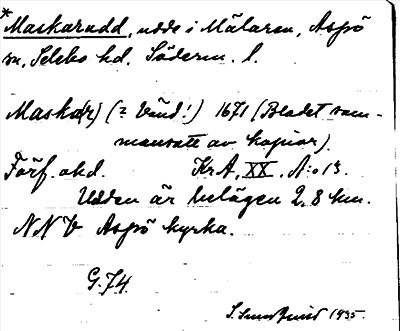 *Maskarudd, udde i Mälaren, Aspö
sn, Selebo hd. Söderm. l.
Maska(r) (? Vänd!) 1671 (Bladet sam-
mansatt av kopior).
Förf. okd. KrA, XX, N:o 13.
Udden är belägen 2,8 km.
NNV Aspö kyrka.
G.74.
1935.